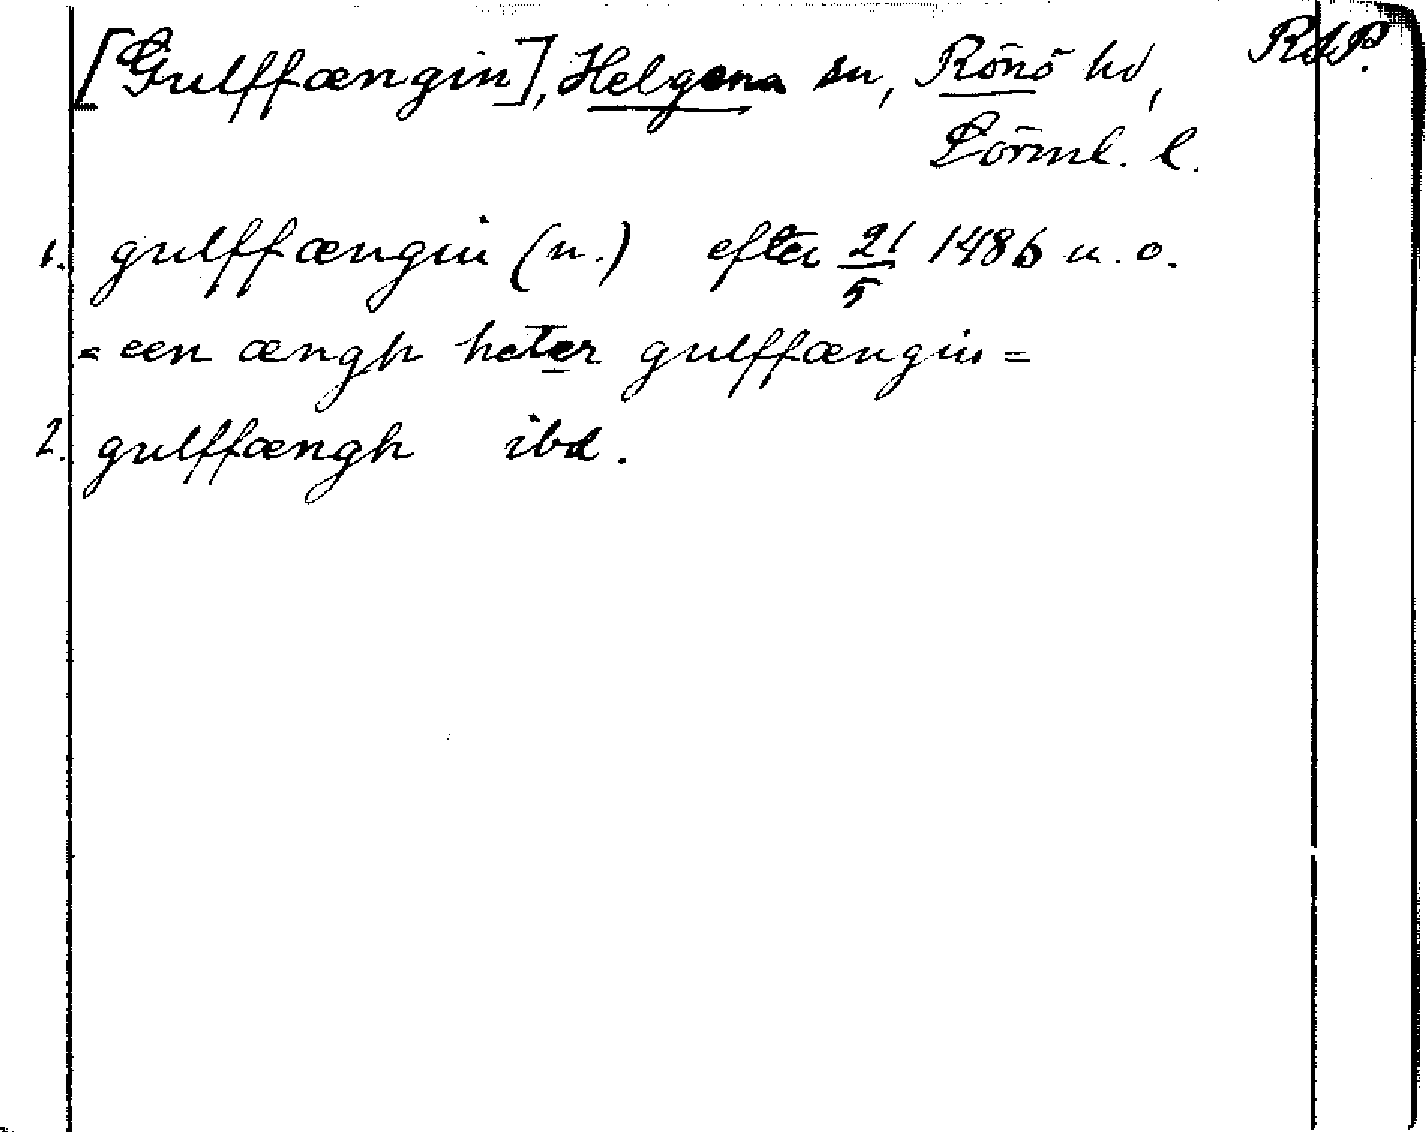 [Gulffængin], Helgona sn, Rönö hd, RAP.
Sörml. l.
1. gulffængin (n.) efter 21/5 1486 u. o.
= een ængh heter gulffængin =
2. gulffængh ibd.